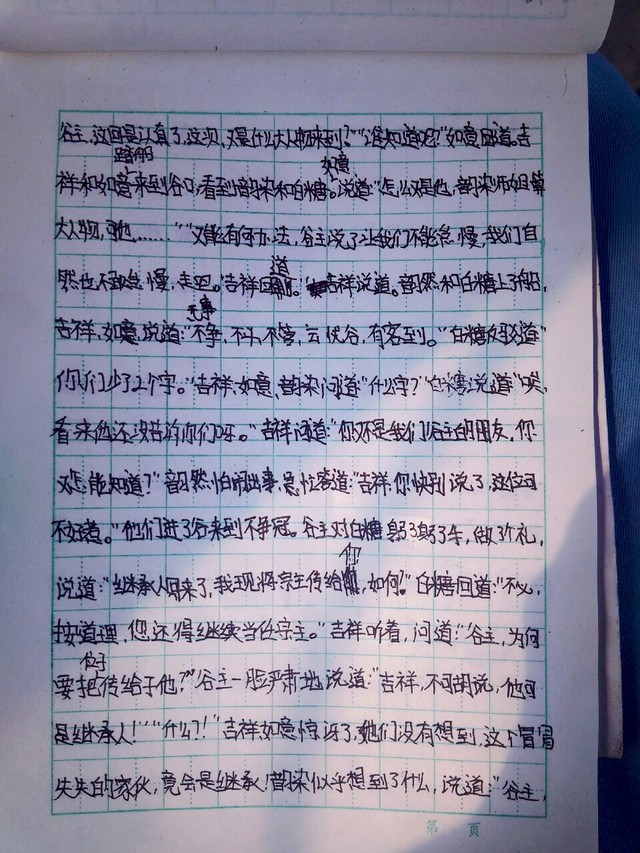 谷主,这回是认真了,这次,又是什么大人物来到?"谁知道呢?"如意回道。吉
祥和如意来到谷口,看到韵染和白糖。如意说道:"怎么又是他,韵染师姐算
大人物,可他……""又能有何办法,谷主说了让我们不能怠慢,我们自
然也不敢怠慢,走吧。"吉祥回道。吉祥说道。韵然和白糖上了船,
吉祥,如意,说道:"不争,不斗,不答,无事,云伏谷,有客到。"白糖反驳道"
你们少了2个字。"吉祥、如意、韵染问道:"什么字?"白糖说道:"唉,
看来他还没告诉你们呀。"吉祥问道:"你不是我们谷主的朋友,你
又怎能知道?"韵然怕闹出事,急忙答道:"吉祥,你快别说了,这位可
不好惹。"他们进了谷来到不争冠。谷主对白糖躬了躬了牛,做3个礼,
说道:"继承人回来了,我现将宗主传给你,如何?"白糖回道:"不必,
按道理,您还得继续当任守主。"吉祥听着,问道:"谷主,为何
要把位子传给于他?"谷主一脸严肃地说道:"吉祥,不可胡说,他可
是继承人!""什么?!"吉祥如意惊讶了,她们没有想到,这个冒冒
失失的家伙,竟会是继承!韵染似乎想到了什么,说道:"谷主,
第 页